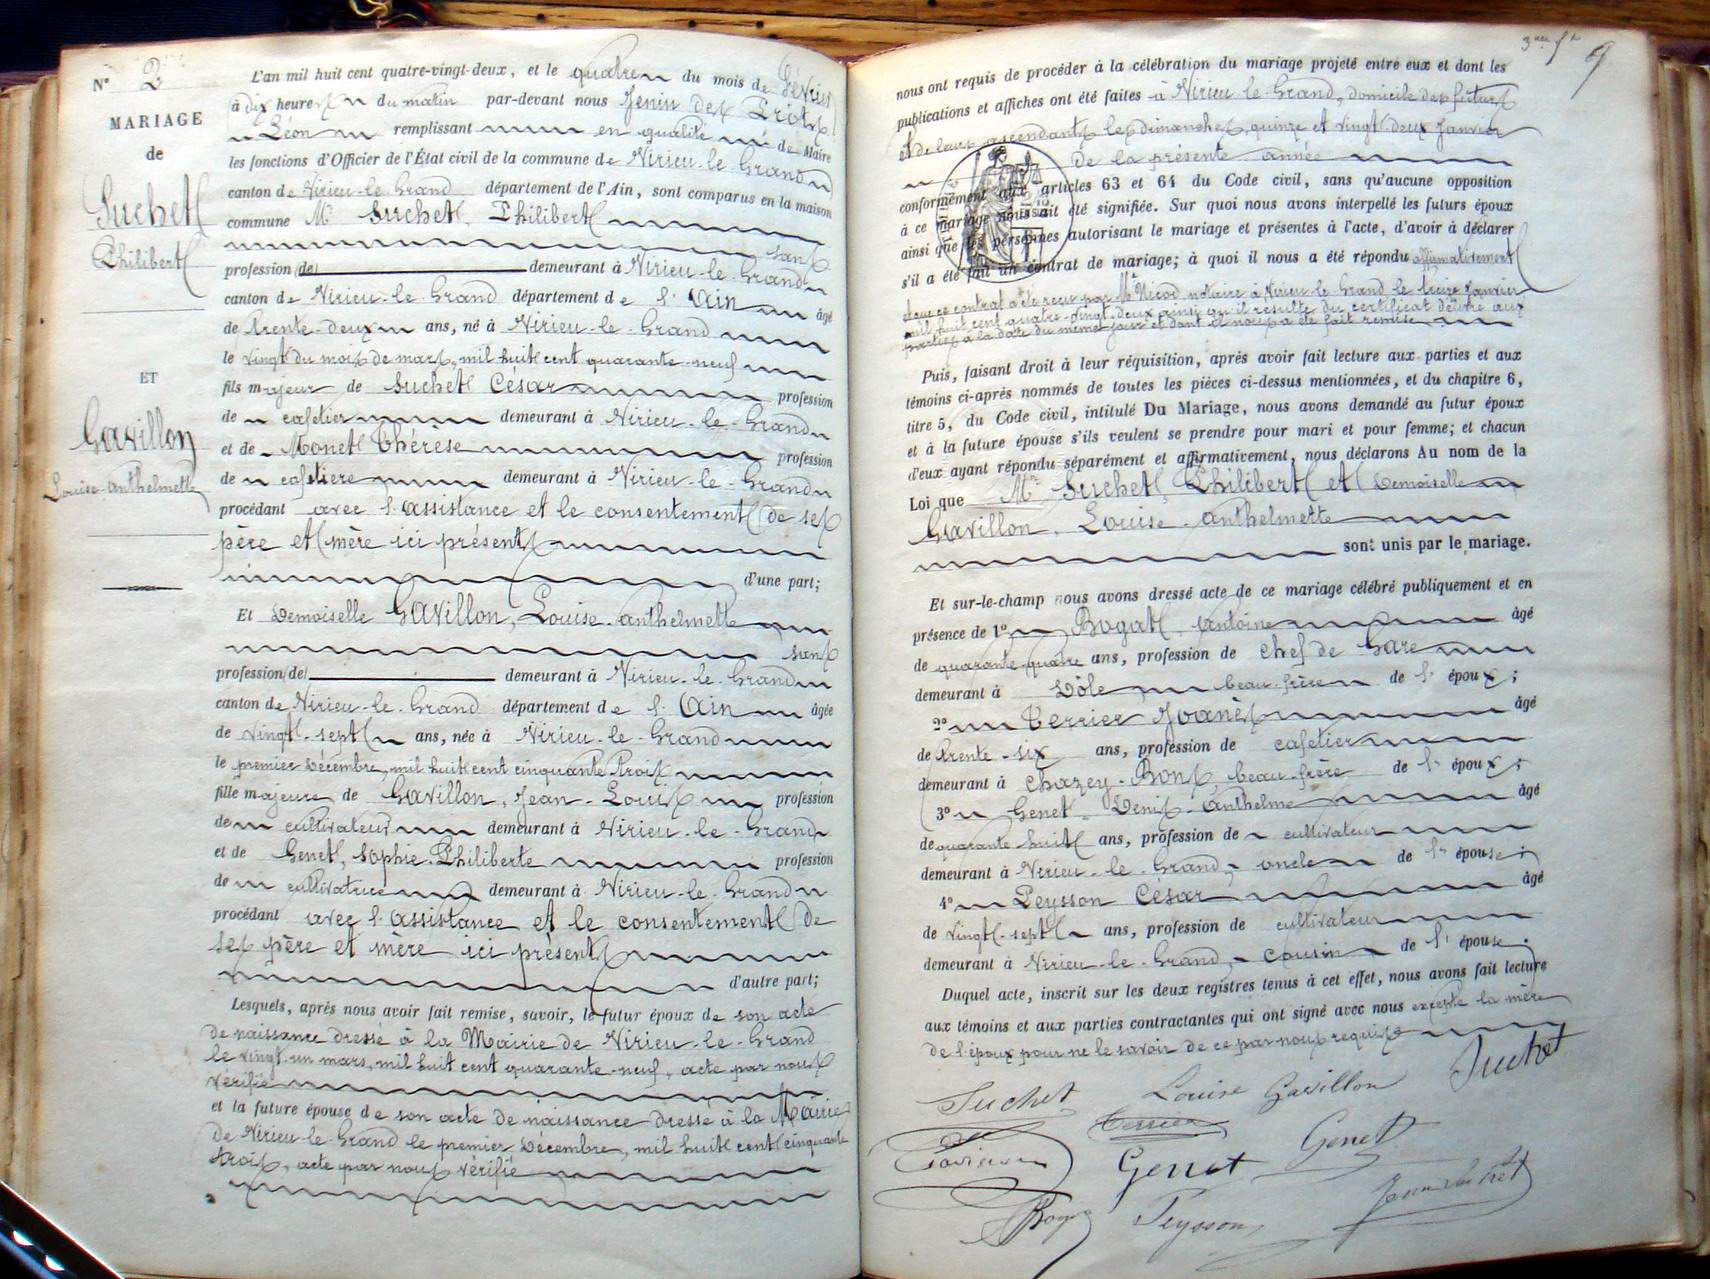 N° 2
MARIAGE
de
Suchet
Philibert
ET
Gavillon
Louise-Anthelmette
L'an mil huit cent quatre-vingt-deux, et le quatre du mois de Février
à dix heures du matin par-devant nous Jenin des Prots
Léon remplissant en qualité de Maire
les fonctions d'Officier de l'État civil de la commune de Virieu-le-Grand
canton de Virieu-le-Grand département de l'Ain, sont comparus en la maison
commune Mr Suchet, Philibert
sans
profession (de) demeurant à Virieu-le-Grand
canton de Virieu-le-Grand département de l'Ain âgé
de trente-deux ans, né à Virieu-le-Grand
le vingt du mois de mars, mil huit cent quarante-neuf
fils majeur de Suchet César profession
de cafetier demeurant à Virieu-le-Grand
et de Monet Thérèse profession
de cafetière demeurant à Virieu-le-Grand
procédant avec l'assistance et le consentement de ses
père et mère ici présents
d'une part;
Et Demoiselle Gavillon, Louise-Anthelmette
sans
profession (de) demeurant à Virieu-le-Grand
canton de Virieu-le-Grand département de l'Ain âgée
de vingt-sept ans, née à Virieu-le-Grand
le premier Décembre, mil huit cent cinquante trois
fille majeure de Gavillon, Jean-Louis profession
de cultivateur demeurant à Virieu-le-Grand
et de Genet, Sophie-Philiberte profession
de cultivatrice demeurant à Virieu-le-Grand
procédant avec l'assistance et le consentement de
ses père et mère ici présents
d'autre part;
Lesquels, après nous avoir fait remise, savoir, le futur époux de son acte
de naissance dressé à la Mairie de Virieu-le-Grand
le vingt-un mars, mil huit cent quarante-neuf, acte par nous
vérifié
et la future épouse de son acte de naissance dressé à la Mairie
de Virieu-le-Grand le premier Décembre, mil huit cent cinquante
trois, acte par nous vérifié
nous ont requis de procéder à la célébration du mariage projeté entre eux et dont les
publications et affiches ont été faites à Virieu-le-Grand, domicile des futurs
et de leurs ascendants les dimanches, quinze et vingt-deux Janvier
de la présente année
conformément aux articles 63 et 64 du Code civil, sans qu'aucune opposition
à ce mariage nous ait été signifiée. Sur quoi nous avons interpellé les futurs époux
ainsi que les personnes autorisant le mariage et présentes à l'acte, d'avoir à déclarer
s'il a été fait un contrat de mariage; à quoi il nous a été répondu affirmativement
et que ce contrat a été reçu par Me Nicod notaire à Virieu-le-Grand le treize Janvier
mil huit cent quatre-vingt-deux ainsi qu'il résulte du certificat délivré aux
parties à la date du même jour et dont il nous a été fait remise
Puis, faisant droit à leur réquisition, après avoir fait lecture aux parties et aux
témoins ci-après nommés de toutes les pièces ci-dessus mentionnées, et du chapitre 6,
titre 5, du Code civil, intitulé Du Mariage, nous avons demandé au futur époux
et à la future épouse s'ils veulent se prendre pour mari et pour femme; et chacun
d'eux ayant répondu séparément et affirmativement, nous déclarons Au nom de la
Loi que Mr Suchet, Philibert et Demoiselle
Gavillon, Louise-Anthelmette
sont unis par le mariage.
Et sur-le-champ nous avons dressé acte de ce mariage célébré publiquement et en
présence de 1° Bogat, Antoine âgé
de quarante-quatre ans, profession de chef de Gare
demeurant à Dôle beau-frère de l'époux;
2° Terrier Joanès âgé
de trente-six ans, profession de cafetier
demeurant à Chazey-Bons, beau-frère de l'époux;
3° Genet, Denis-Anthelme âgé
de quarante huit ans, profession de cultivateur
demeurant à Virieu-le-Grand, oncle de l'épouse;
4° Peysson César âgé
de vingt-sept ans, profession de cultivateur
demeurant à Virieu-le-Grand, cousin de l'épouse.
Duquel acte, inscrit sur les deux registres tenus à cet effet, nous avons fait lecture
aux témoins et aux parties contractantes qui ont signé avec nous excepté la mère
de l'époux pour ne le savoir de ce par nous requise
Suchet Louise Gavillon Suchet
Terrier
Genet Genet
Peysson